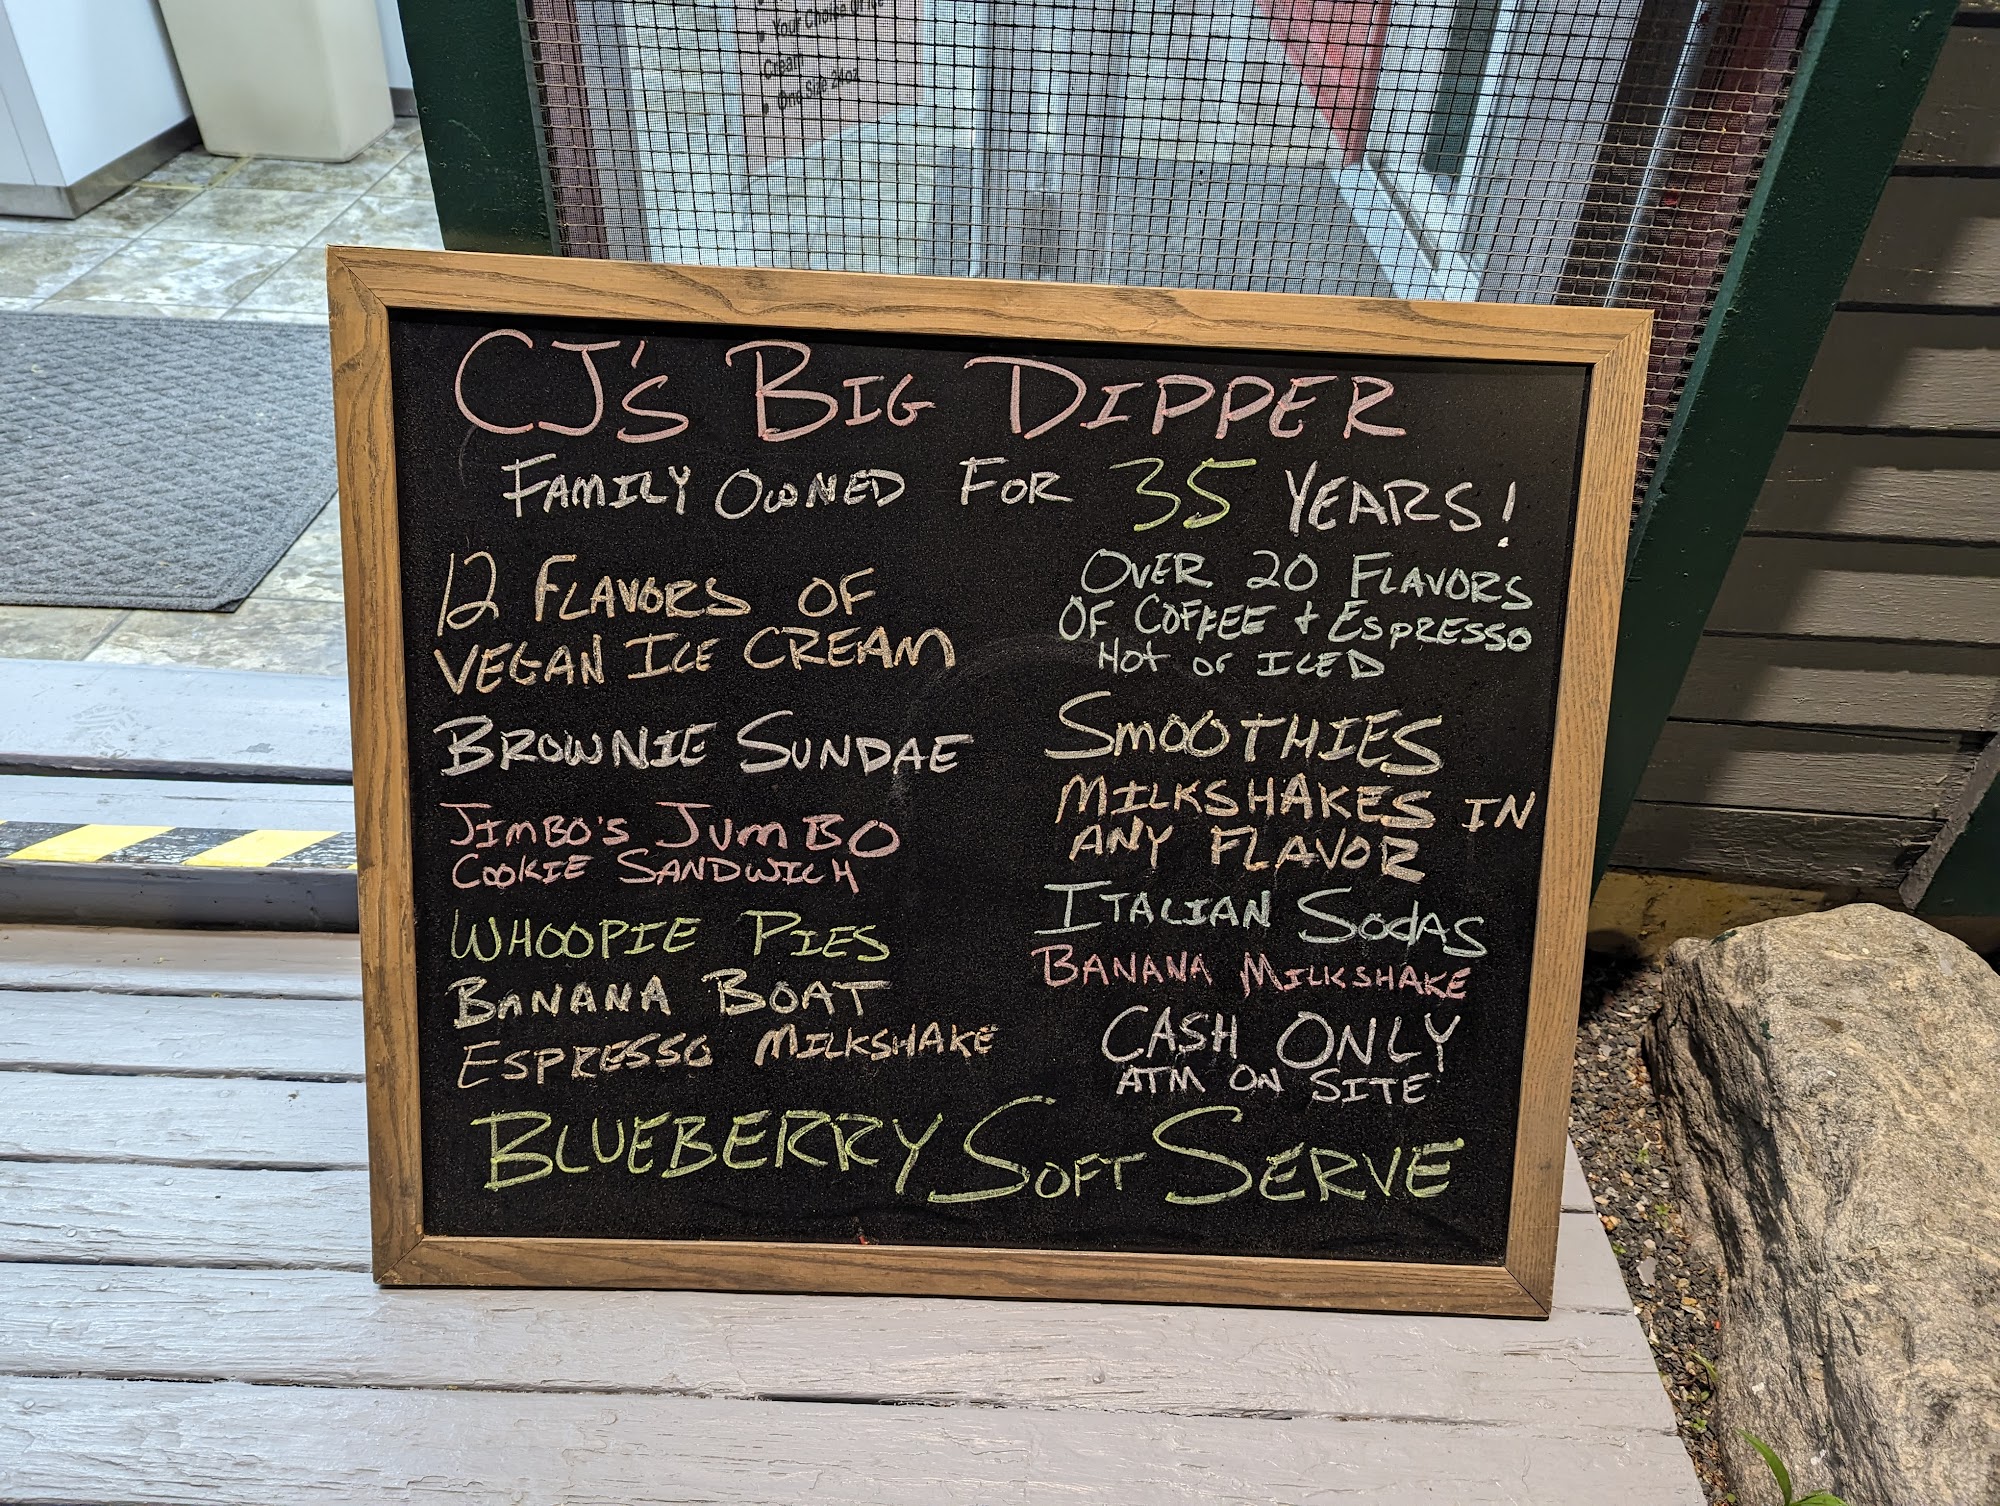 Your Choice of Ice
Cream
One Size 24oz
CJ's BIG DIPPER
FAMILY OWNED FOR 35 YEARS!
12 FLAVORS OF
VEGAN ICE CREAM
BROWNIE SUNDAE
JIMBO'S JUMBO
COOKIE SANDWICH
WHOOPIE PIES
BANANA BOAT
ESPRESSO MILKSHAKE
OVER 20 FLAVORS
OF COFFEE + ESPRESSO
HOT or ICED
SMOOTHIES
MILKSHAKES IN
ANY FLAVOR
ITALIAN SODAS
BANANA MILKSHAKE
CASH ONLY
ATM ON SITE
BLUEBERRY SOFT SERVE